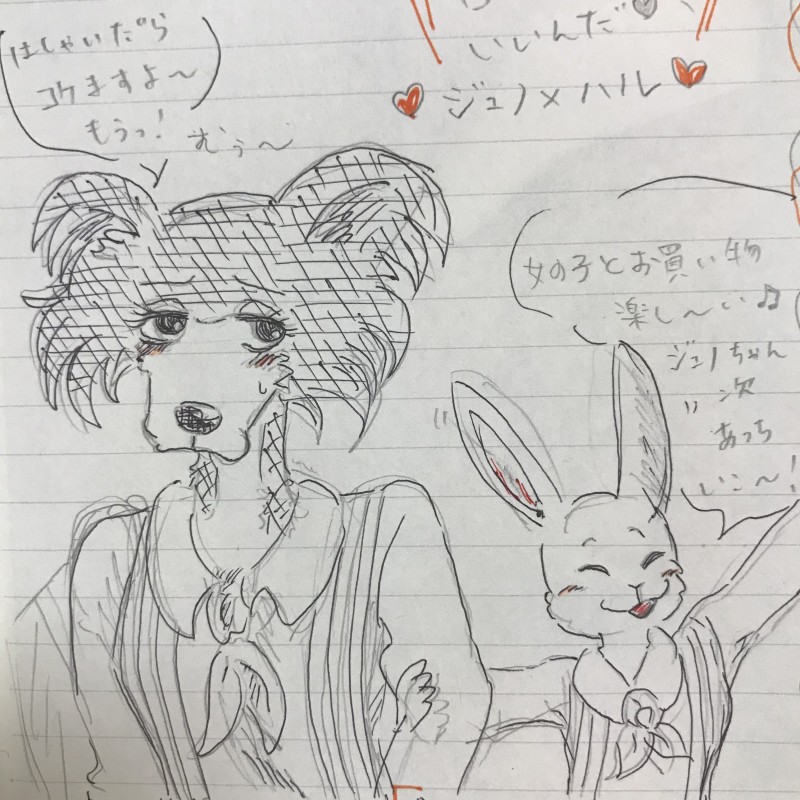 はしゃいだら
コケますよ〜
もうっ!
むぅ〜
いいんだ
ジュノ×ハル
女の子とお買い物
楽し〜い♫
ジュノちゃん
次
あっち
いこ〜!